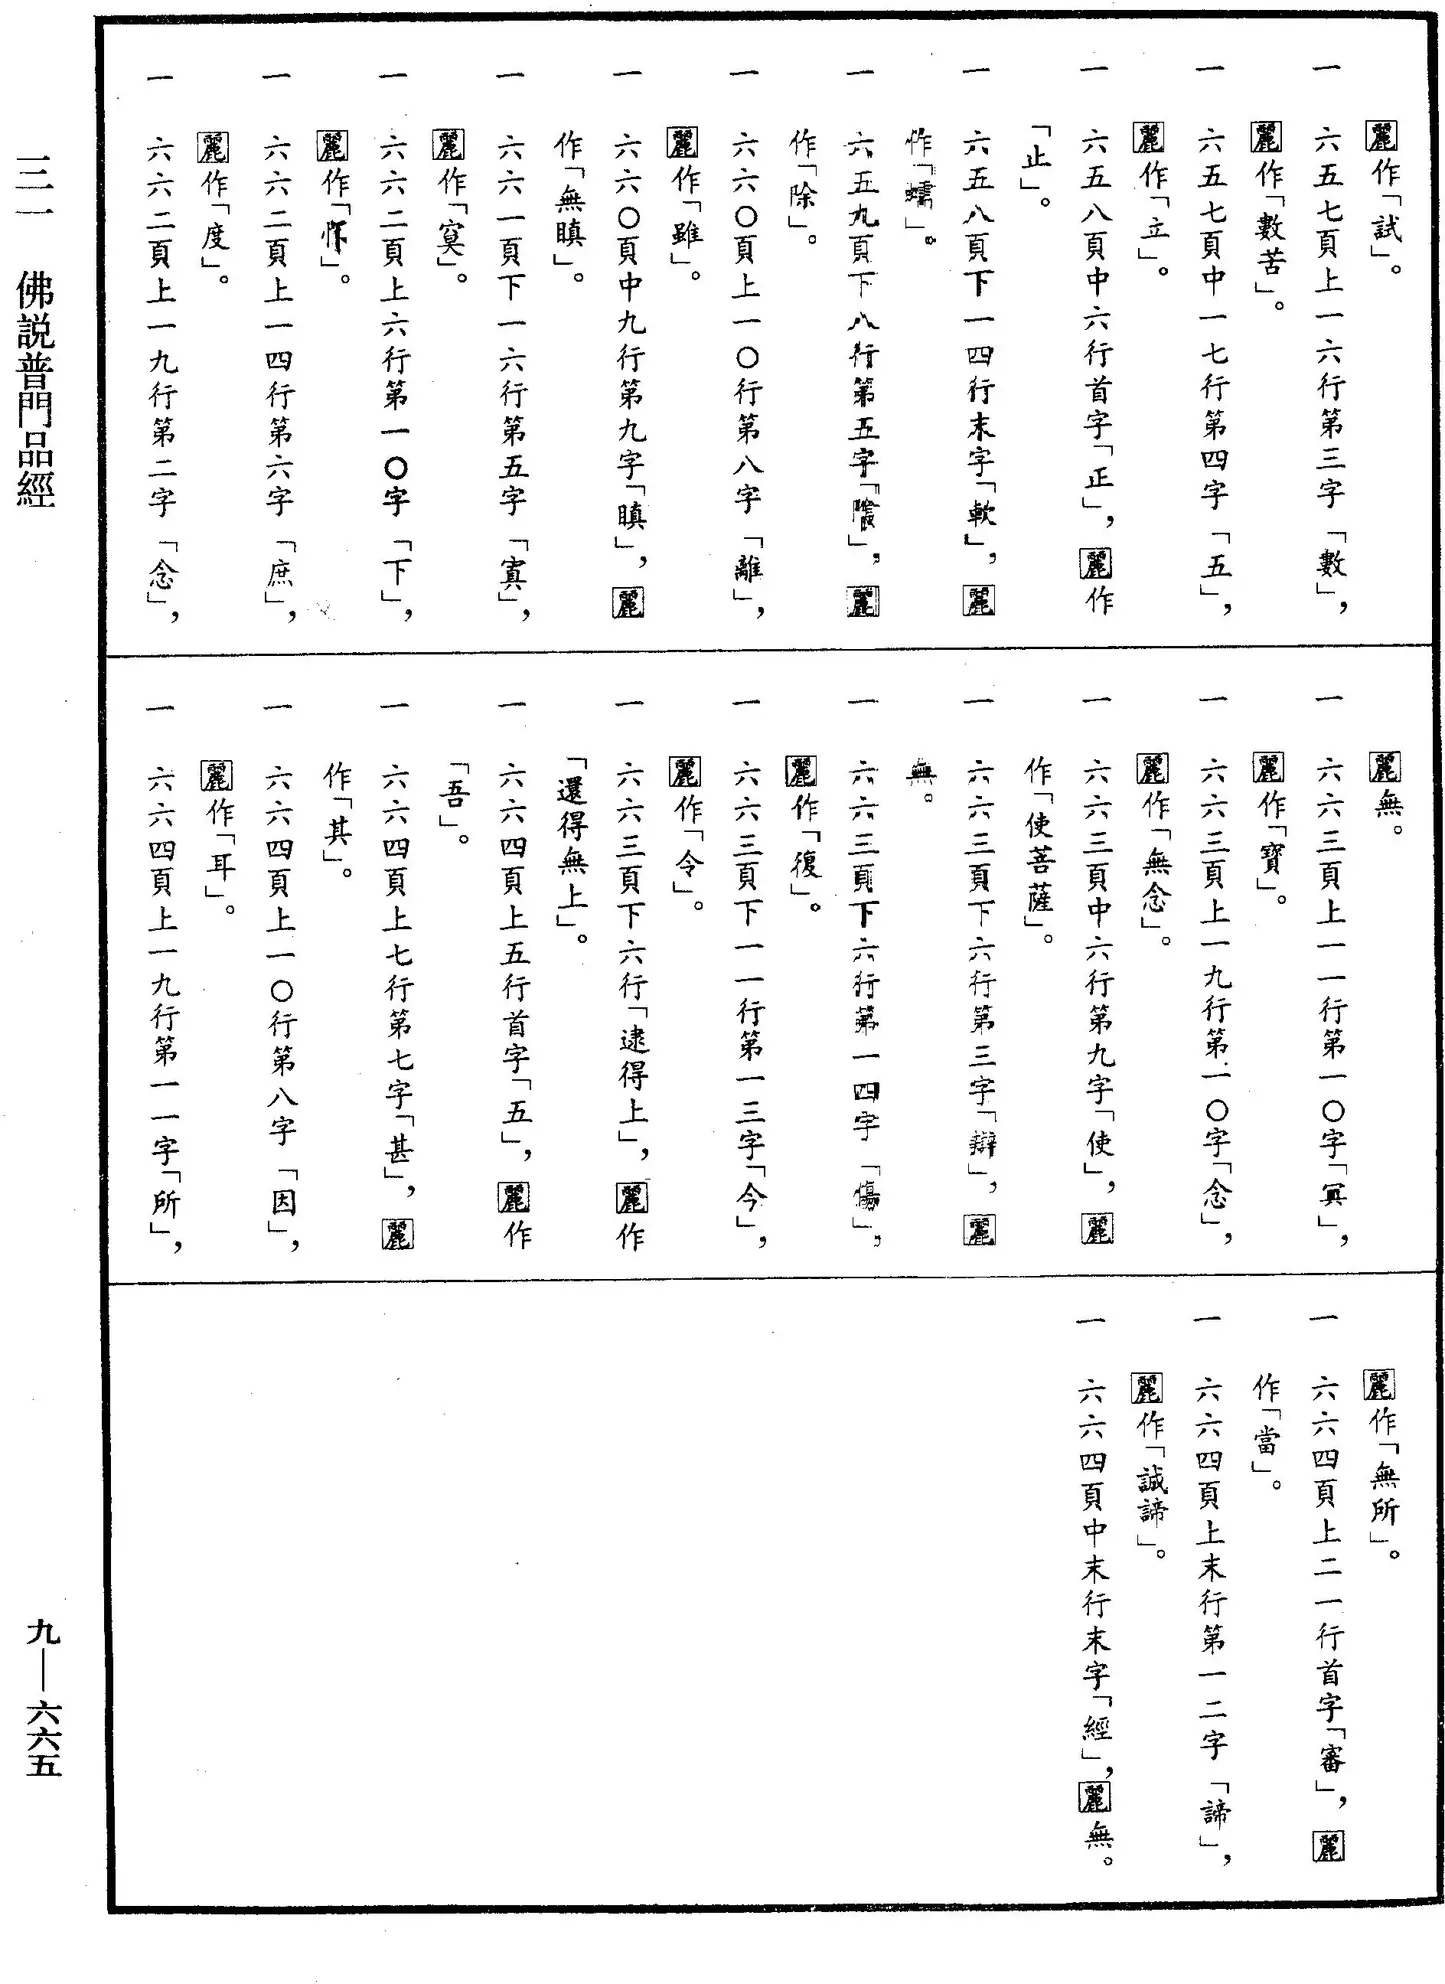 麗作「試」。
一 六五七頁上一六行第三字「數」，
麗作「數苦」。
一 六五七頁中一七行第四字「五」，
麗作「立」。
一 六五八頁中六行首字「正」，麗作
「止」。
一 六五八頁下一四行末字「軟」，麗
作「蠕」。
一 六五九頁下八行第五字「陰」，麗
作「除」。
一 六六〇頁上一〇行第八字「離」，
麗作「雖」。
一 六六〇頁中九行第九字「瞋」，麗
作「無瞋」。
一 六六一頁下一六行第五字「寘」，
麗作「寞」。
一 六六二頁上六行第一〇字「下」，
麗作「怀」。
一 六六二頁上一四行第六字「庶」，
麗作「度」。
一 六六二頁上一九行第二字「念」，
麗無。
一 六六三頁上一一行第一〇字「寘」，
麗作「寶」。
一 六六三頁上一九行第一〇字「念」，
麗作「無念」。
一 六六三頁中六行第九字「使」，麗
作「使菩薩」。
一 六六三頁下六行第三字「辯」，麗
無。
一 六六三頁下六行第一四字「傷」，
麗作「復」。
一 六六三頁下一一行第一三字「今」，
麗作「令」。
一 六六三頁下六行「逮得上」，麗作
「還得無上」。
一 六六四頁上五行首字「五」，麗作
「吾」。
一 六六四頁上七行第七字「甚」，麗
作「其」。
一 六六四頁上一〇行第八字「因」，
麗作「耳」。
一 六六四頁上一九行第一一字「所」，
麗作「無所」。
一 六六四頁上二一行首字「審」，麗
作「當」。
一 六六四頁上末行第一二字「諦」，
麗作「誠諦」。
一 六六四頁中末行末字「經」，麗無。
三一 佛説普門品經
九—六六五